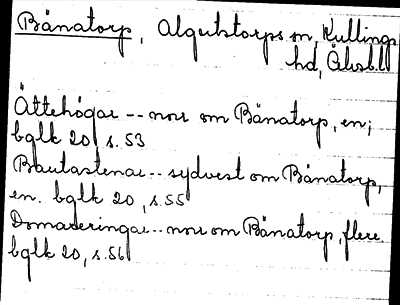 Bånatorp, Algutstorps sn, Kullings
hd, Älvsb.l
Ättehögar -- norr om Bånatorp, en;
bglk 20, s. 53
Bautastenar -- sydvest om Bånatorp,
en. bglk 20, s. 55
Domareringar -- norr om Bånatorp, flere
bglk 20, s. 56